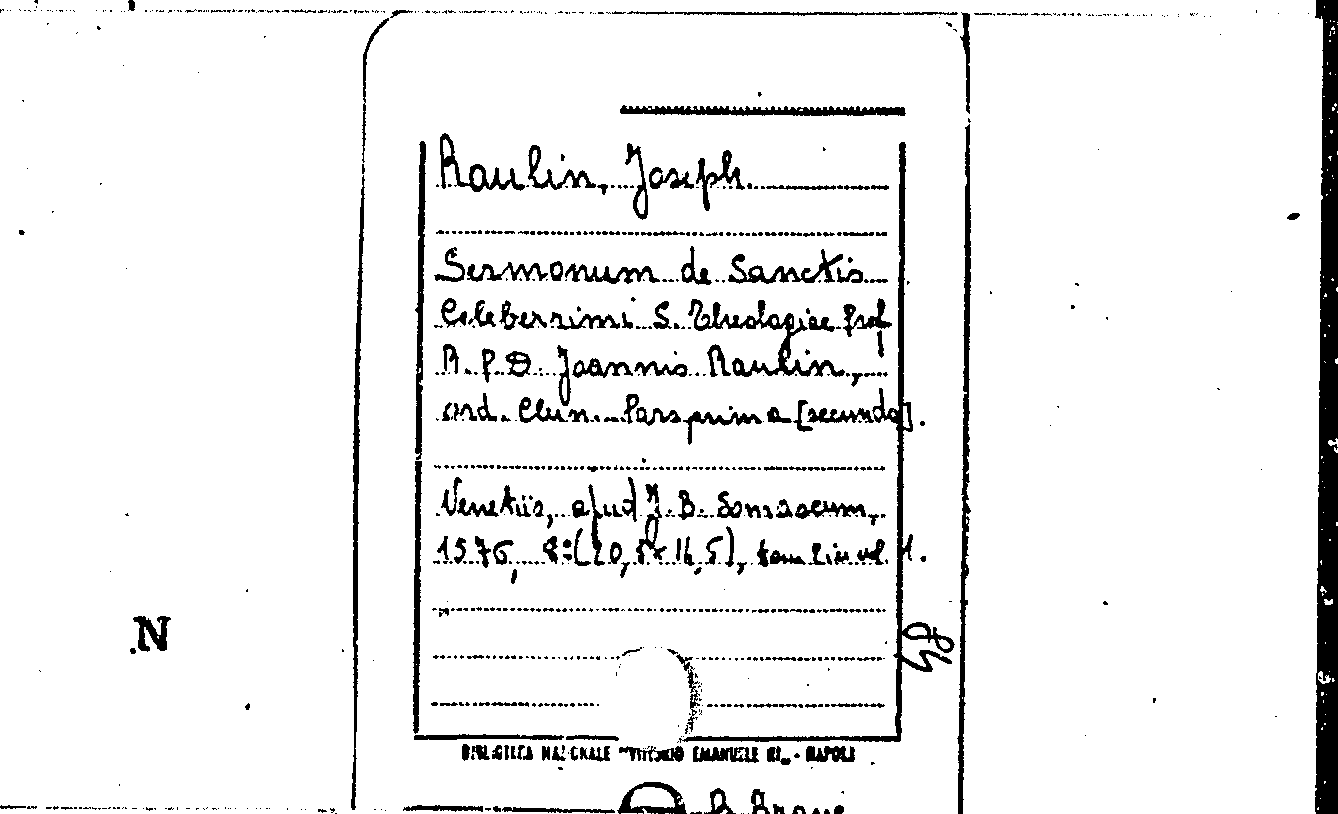 Raulin, Joseph.
Sermonum de Sanctis
Celeberrimi S. Theologiae Prof
R. P. D. Joannis Raulin,
ord. Clun. Pars prima [secunda].
Venetiis, apud J. B. Somascum,
1576, 8°(20,5x14,5), tom 2 in vol 1.
N
BIBLIOTECA NAZIONALE "VITTORIO EMANUELE III" - NAPOLI